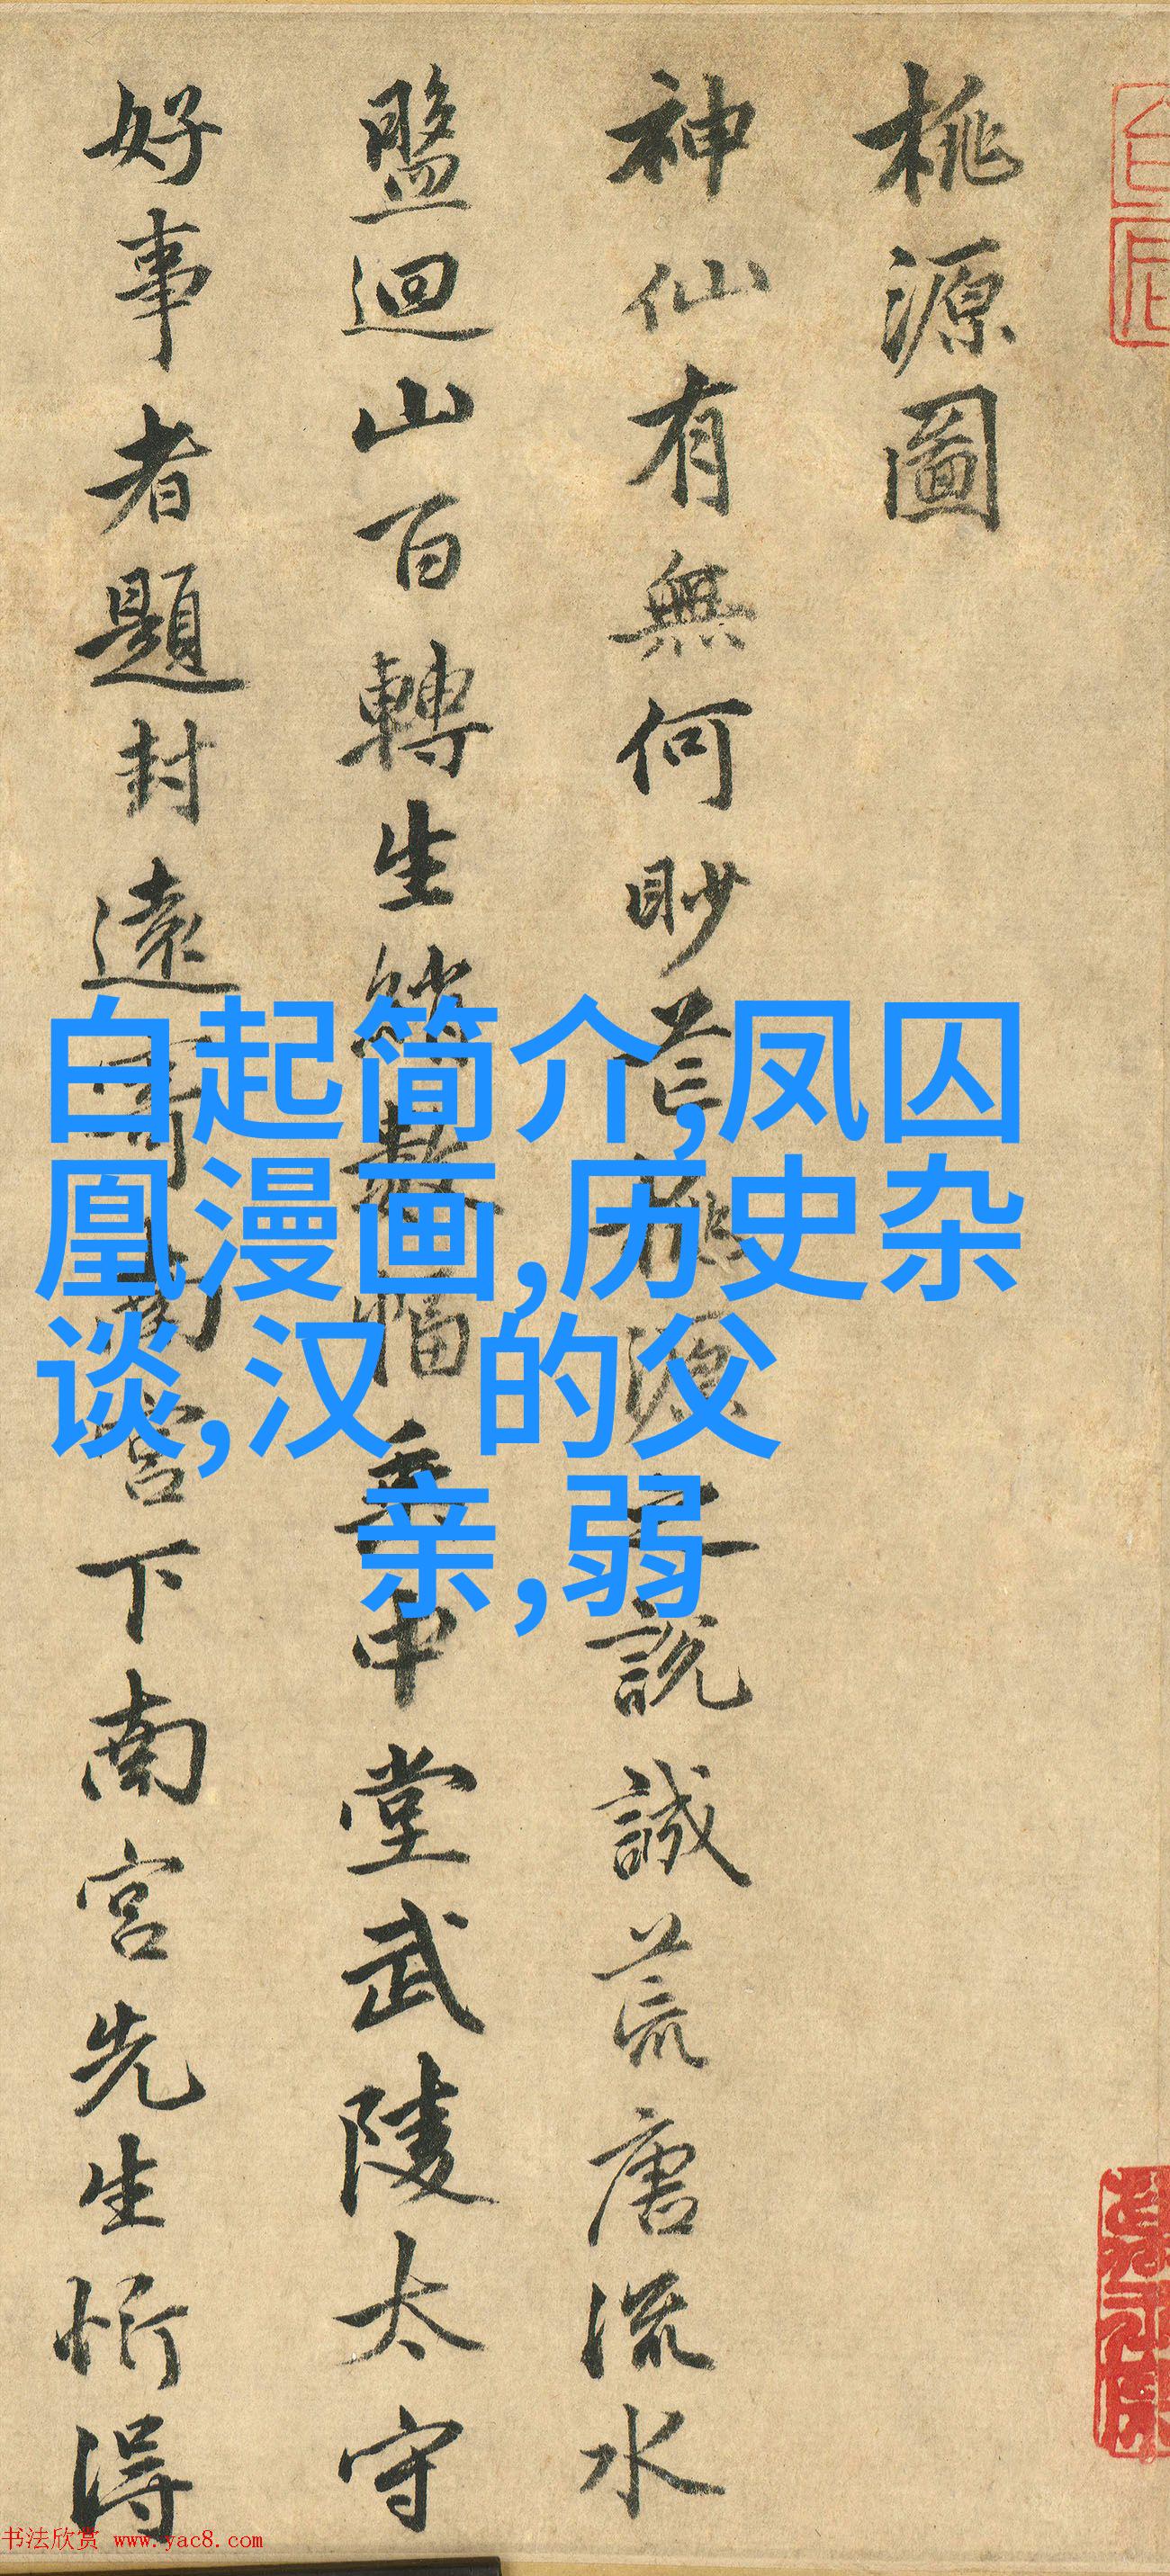 桃源圖
神仙有無何眇芒桃源之說誠荒唐流水
盤迴山百轉生綃數幅垂中堂武陵太守
好事者題封遠寄南宮下南宮先生忻得
白起简介,凤囚
凰漫画,历史杂
谈,汉 的父
亲,弱
书法欣赏 www.yac8.com